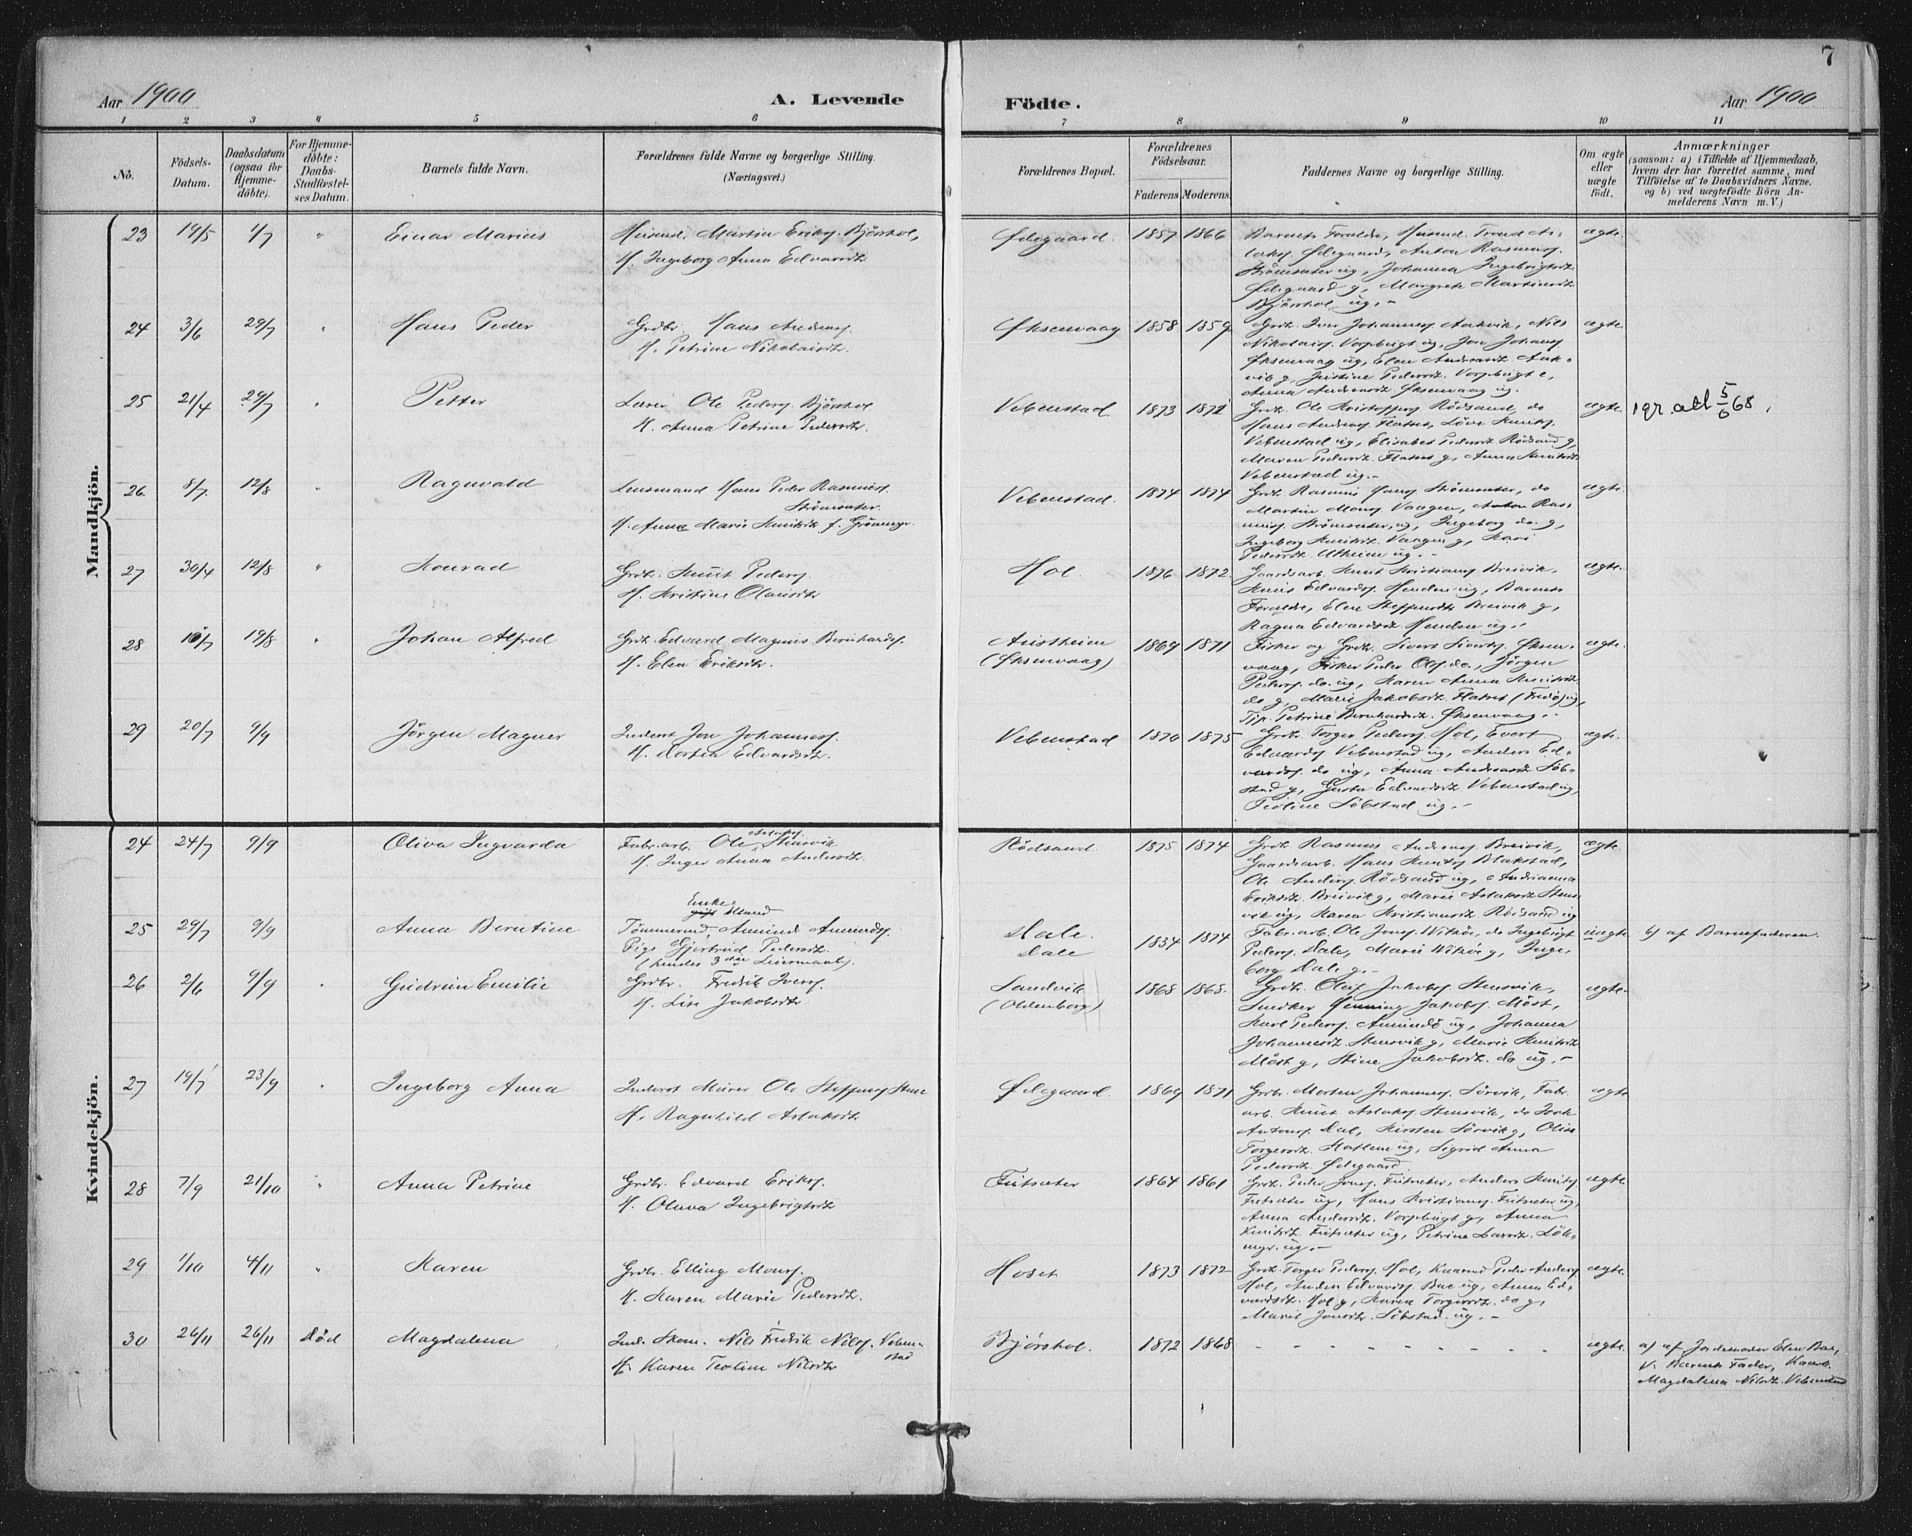 7
Aar 1900
A. Levende
Födte.
Aar 1900
1 2 3 4 5 6 7 8 9 10 11
No.
Födsels-
Datum.
Daabsdatum
(ogsaa for
Hjemme-
döbte).
For Hjemme-
döbte:
Daabs-
Stadfæstel-
ses Datum.
Barnets fulde Navn.
Forældrenes fulde Navne og borgerlige Stilling.
(Næringsvei.)
Forældrenes Bopæl.
Forældrenes
Födselsaar.
Faderens
Moderens
Faddernes Navne og borgerlige Stilling.
Om ægte
eller
uægte
födt.
Anmærkninger
(saasom: a) i Tilfælde af Hjemmedaab,
hvem der har forrettet samme, med
Tilföielse af to Daabsvidners Navne,
og b) ved uægtefödte Börn An-
melderens Navn m. V.)
Mandkjön.
23 19/5 1/7 " Einar Marius
Husmd. Martin Eriks. Bjørshol,
H. Ingeborg Anna Edvardsdt.
Ødegaard 1857 1866
Barnets Forældre, Husmd. Trond As-
laks. Ødegaard, Anton Rasmuss.
Strömsæter ug, Johanna Ingebrigtsdt.
Ødegaard g, Margrete Martinsdt.
Bjørshol ug.-
ægte
24 3/6 29/7 " Hans Peder
Grdbr. Hans Anders.
H. Petrine Nikolaisdt.
Øksenvaag 1858 1859
Grdb. Iver Johannes. Aakvik, Nils
Nikolais. Vorpbugt ug, Jon Johans.
Øksenvaag ug, Elen Andersdt. Aak-
vik g, Kristine Pedersdt. Vorpbugt e,
Anna Andersdt. Øksenvaag ug.
ægte
25 21/4 29/7 " Petter
Lærer Ole Peders. Bjørshol
H. Anna Petrine Pedersdt.
Vebenstad 1873 1872
Grdb. Ole Kristoffers. Rödsand, do
Hans Anders. Flatset, Love Knuts.
Vebenstad ug, Elisabet Pedersdt. Rödsand g,
Maren Pedersdt. Flatset g, Anna Knutsdt.
Vebenstad ug.-
ægte
1 gr. att 5/6 68.
26 8/7 12/8 " Ragnvald
Lensmand Hans Peder Rasmuss.
Strömsæter
H. Anna Marie Knutsdt. f. Grönmyr.
Vebenstad. 1874 1874
Grdb. Rasmus Hans. Strömsæter, do
Martin Mons. Vaagen, Anton Ras-
muss. Strömsæter ug, Ingeborg do g,
Ingeborg Knutsdt. Vaagen g, Kari
Pedersdt. Utheim ug.-
ægte
27 30/4 12/8 " Konrad
Grdb. Knut Peders.
H. Kristine Olausdt.
Hol. 1876 1872.
Gaardsarb. Knut Kristians. Breivik,
Knut Edvards. Henden ug, Barnets
Forældre, Elen Steffensdt. Breivik g,
Ragna Edvardsdt. Henden ug.-
ægte
28 10/7 19/8 " Johan Alfred
Grdb. Edvard Magnus Bernhards.
H. Elen Eriksdt.
Austheim
(Øksenvaag) 1869 1871
Fisker og Grdb. Sivert Siverts. Øksen-
vaag, Fisker Peder Ols. do, Jörgen
Peders. do. ug, Karen Anna Knutsdt.
do g, Marie Jakobsdt. Flatset (Fredö) ug,
Tjp. Petrine Bernhardsdt. Øksenvaag.-
ægte
29 20/7 9/9 Jörgen Magner
Inderst Jon Johannes.
H. Dortea Edvardsdt.
Vebenstad 1870 1875
Grdb. Torger Peders. Hol, Evert
Edvards. Vebenstad ug, Anders Ed-
vards. do ug, Anna Andersdt. Söb-
stad g, Gusta Edvardsdt. Vebenstad ug,
Teoline Söbstad ug.-
ægte
Kvindekjön.
24 24/7 9/9 Oliva Ingvarda
Fabr.arb. Ole Aslaks. Stensvik
H. Inger Anna Andersdt.
Rödsand 1875 1874
Grdb. Rasmus Anders. Breivik,
Gaardsarb. Hans Knuts. Blakstad,
Ole Anders. Rödsand ug, Andrianna
Eriksdt. Breivik g, Marie Aslaksdt. Stens-
vik ug, Karen Kristiansdt. Rödsand ug
ægte
25 29/7 9/9 Anna Berntine
Enke
gift Mand
Tömmermd. Amund Amunds.
Pige Gjertrud Pedersdt.
(hendes 3die Leiermaal).
Dale.
Dale 1834 1874
Fabr.arb. Ole Jons. Witsö, do Ingebrigt
Peders. Dale, Marie Witsö g, Inge-
borg Dale g.-
uægte b) af Barnefaderen.
26 2/6 9/9 Gudrun Emilie
Grdbr. Fredrik Ivers.
H. Lise Jakobsdt.
Sandvik
(Oldenborg) 1868 1868.
Grdb. Oluf Jakobs. Stensvik,
Snedker Henning Jakobs. Möst,
Karl Peders. Amundö ug, Johanna
Johannesdt. Stensvik g, Marie Knutsdt.
Möst g, Stine Jakobsdt. do ug.-
ægte
27 19/7 23/9 " Ingeborg Anna
Inderst Murer Ole Steffens. Stene
H. Ragnhild Aslaksdt.
Ødegaard. 1869 1871
Grdb. Morten Johannes. Sörvik, Fabr.
arb. Knut Aslaks. Stensvik, do
Antons. Dal, Kirsten Sörvik g, Olin
Torgersdt. ug, Sigrid Anna
Pedersdt. Ødegaard.
ægte
28 7/9 21/10 " Anna Petrine
Grdbr. Edvard Eriks.
H. Oluva Ingebrigtsdt.
Futsæter 1864 1861
Grdb. Peder Jons. Futsæter, Anders Knuts.
Futsæter ug, Hans Kristians. Futsæter ug,
Anna Andersdt. Vorpbugt g, Anna
Knutsdt. Futsæter ug, Petrine Larsdt. Lök-
myr. ug.-
ægte
29 1/10 4/11 " Karen
Grdbr. Elling Mons.
H. Karen Marie Pedersdt.
Hoset 1873 1872
Grdb. Torger Peders. Hol, Kaarmd Peder Anders.
Hol, Anders Edvards. Bae ug, Anna Ed-
vardsdt. Hol g, Karen Torgersdt. do g,
Marit Jonsdt. Söbstad ug.-
ægte
30 26/11 26/11 död Magdalena
Ind. Skom. Nils Fredrik Nils. Veben-
stad
H. Karen Teoline Nilsdt.
Bjørshol. 1872 1868 - - - - - - - - -
ægte a) af Jordemoder Elen Bae,
V. Barnets Fader, Kaark.
Magdalena Nilsdt. Vebenstad